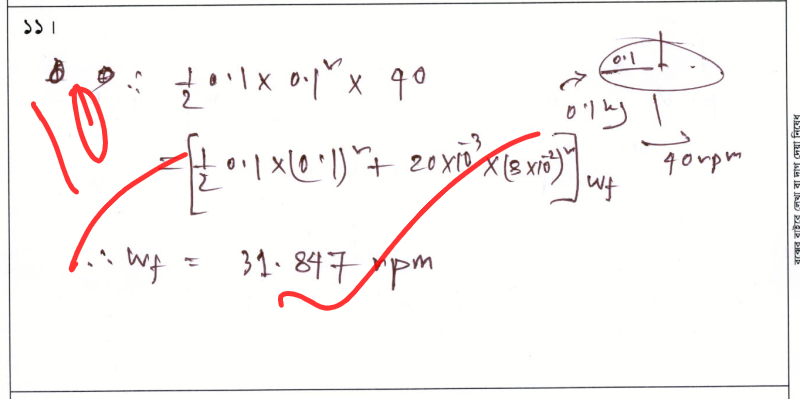 ১১।
∴ ½ 0.1 × 0.1² × 40
= [½ 0.1 × (0.1)² + 20×10⁻³ × (8×10⁻²)²] ωf
∴ ωf = 31.847 rpm
0.1
0.1 kg
40 rpm
10
বক্সের বাইরে লেখা বা দাগ দেয়া নিষেধ